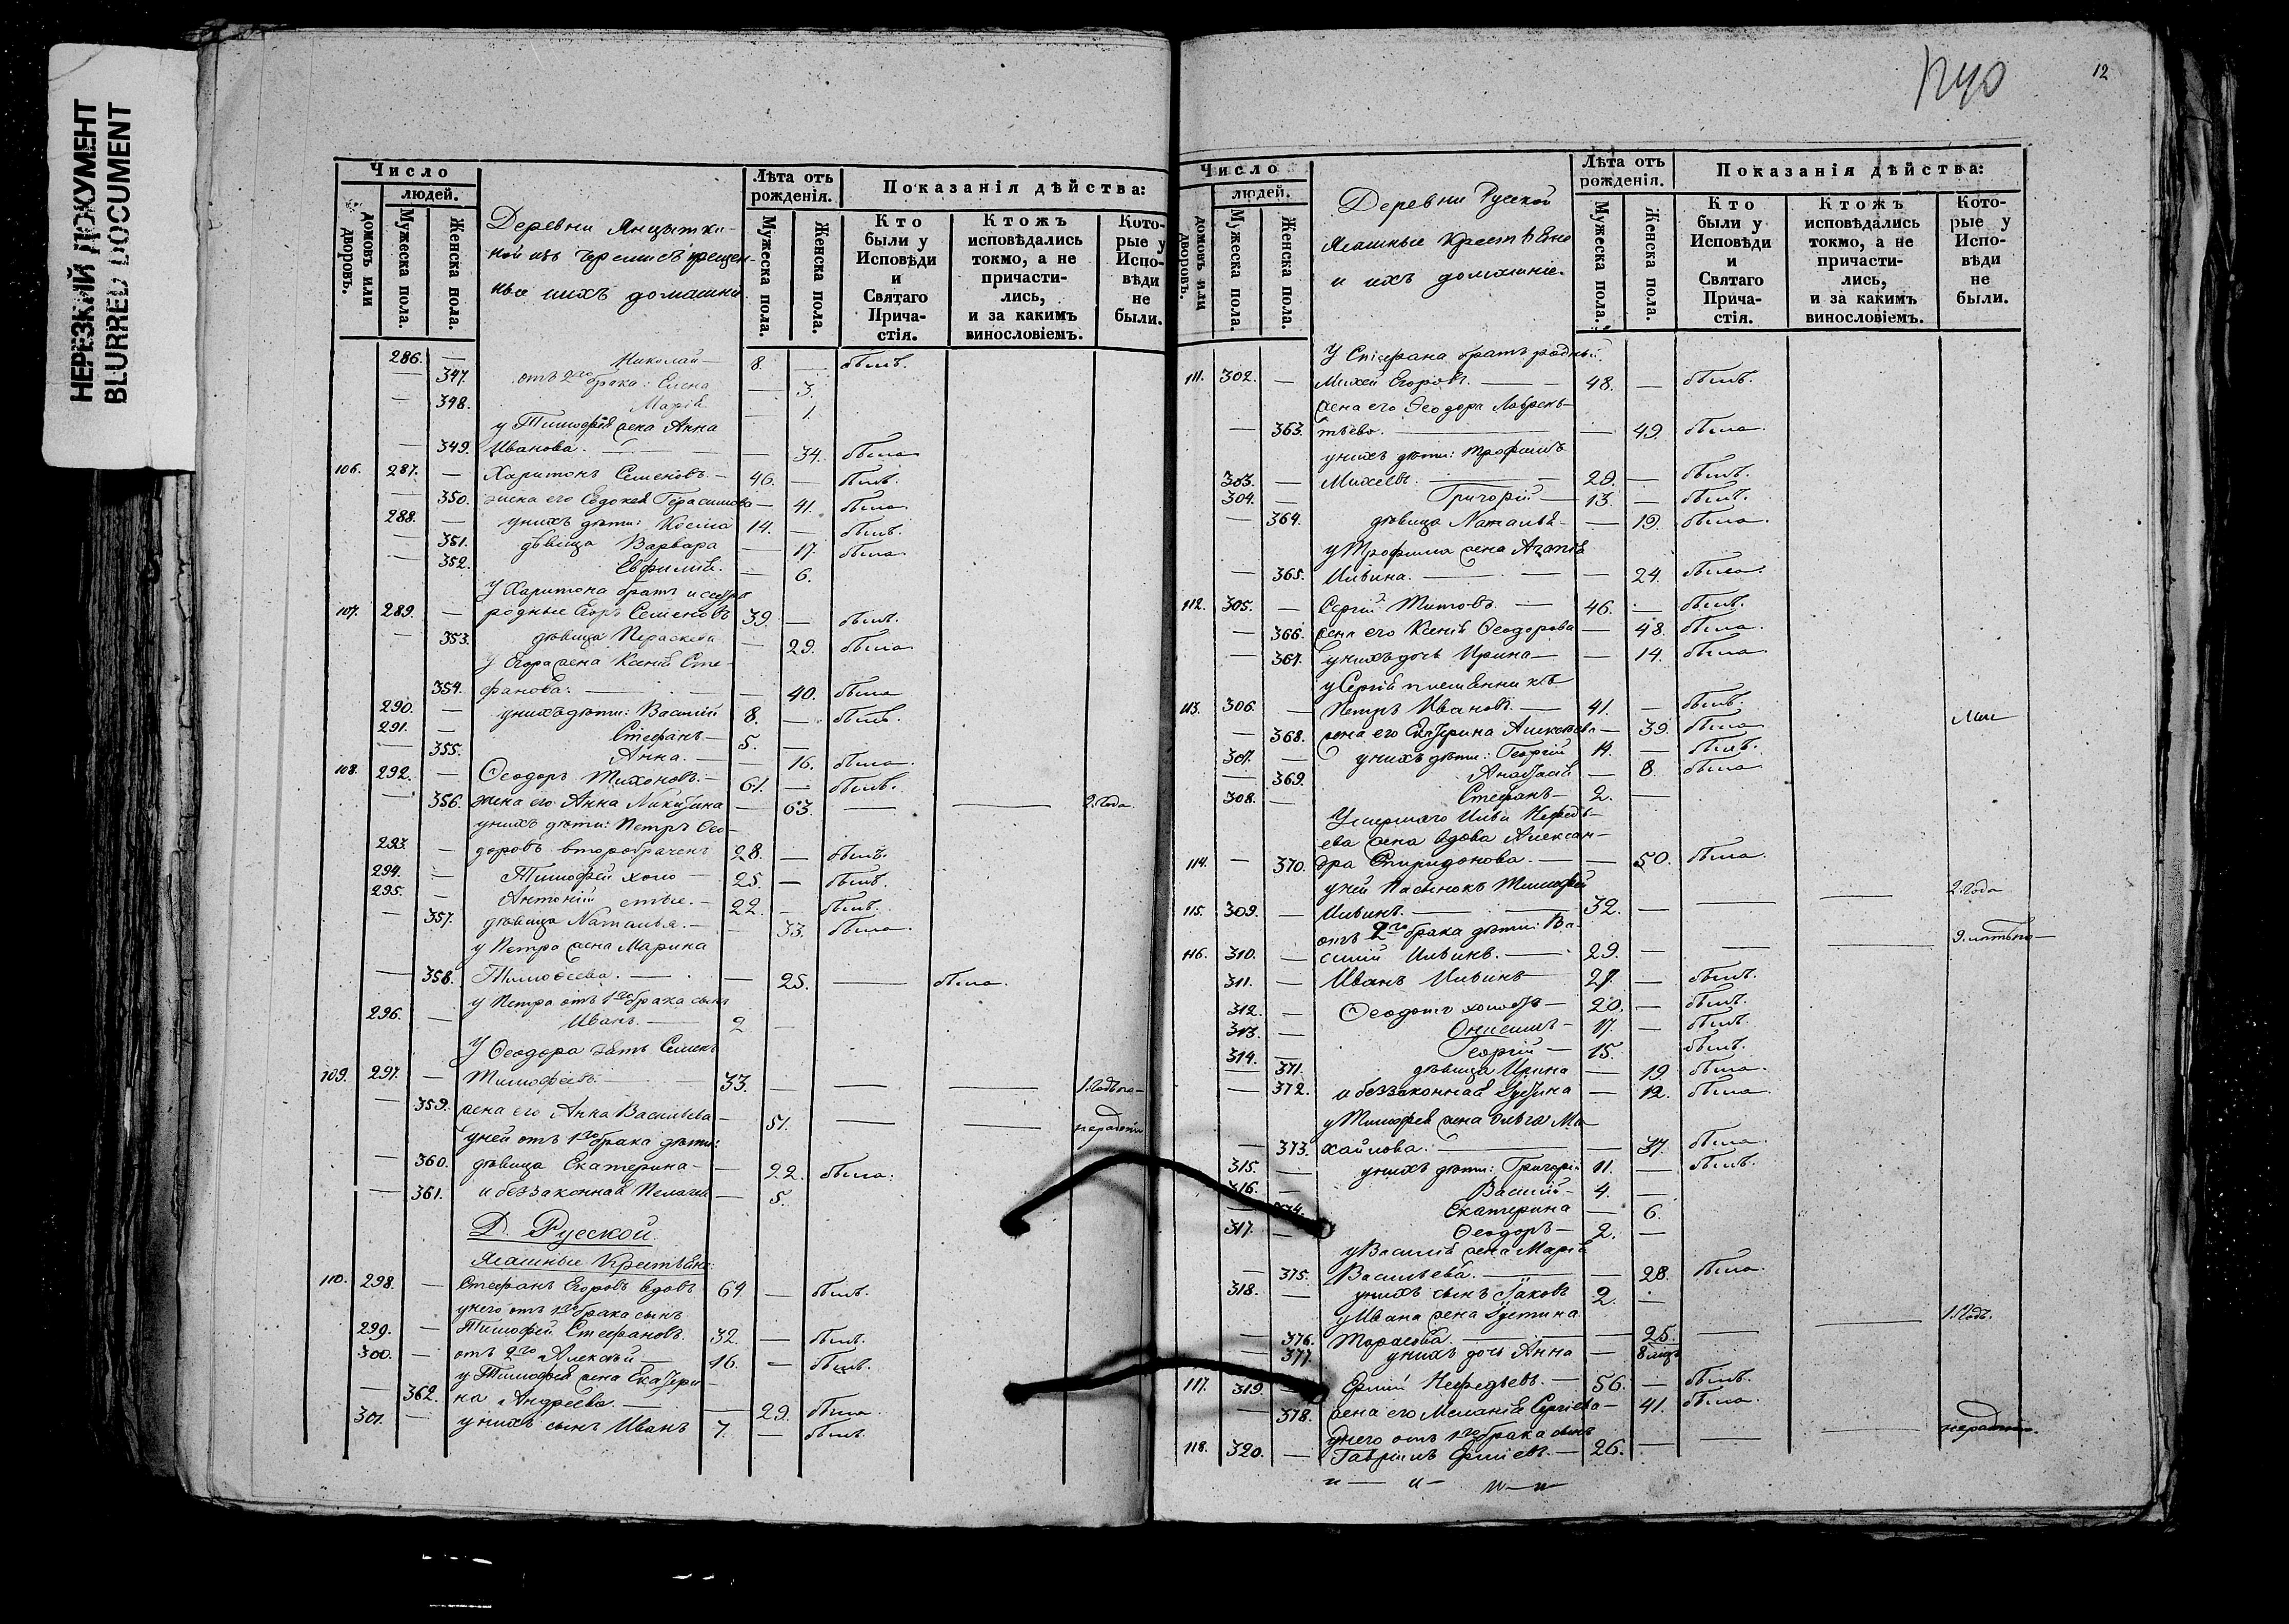 НЕРЕЗКИЙ ДОКУМЕНТ
BLURRED DOCUMENT
Число
людей.
домовъ или дворовъ.
Мужеска пола.
Женска пола.
Деревни
ной изъ Черемисъ крещен-
ные и ихъ домашніе
Лѣта отъ рожденія.
Мужеска пола.
Женска пола.
Показанія дѣйства:
Кто были у Исповѣди и Святаго Прича- стія.
Ктожъ исповѣдались токмо, а не причасти- лись, и за какимъ винословіемъ.
Кото- рые у Испо- вѣди не были.
286. — Николай — 8. — былъ.
— 347. отъ 2го брака: Елена — 3.
— 348. Марія — 1.
у Тимофея жена Анна
— 349. Иванова. — 34. была
106. 287. — Харитонъ Семеновъ. — 46. — былъ.
— 350. жена его Евдокея Герасимова — 41. была
288. — у нихъ дѣти: Косма 14. — былъ.
— 351. дѣвица Варвара — 17. была
— 352. Евфимія. — 6.
У Харитона братъ и сестра
107. 289. — родные Егоръ Семеновъ 39. — былъ.
— 353. дѣвица Параскева — 29. была
У Егора жена Ксенія Сте-
— 354. фанова: — 40. была
290. — у нихъ дѣти: Василій 8. — былъ.
291. — Стефанъ — 5. —
— 355. Анна. — 16. была.
108. 292. — Ѳеодоръ Тихоновъ. — 61. — былъ.
— 356. жена его Анна Никитина — 63. — — 2. года
у нихъ дѣти: Петръ Ѳео-
293. — доровъ второбраченъ 28. — былъ.
294. — Тимофей холо — 25. — былъ.
295. — Антоній стые. — 22. — былъ.
— 357. дѣвица Наталья. — 33. была.
у Петра жена Марина
— 358. Тимофеева. — 25. — была.
у Петра отъ 1го брака сынъ
296. — Иванъ. — 2 —
У Ѳеодора зять Семенъ
109. 297. — Тимофеевъ. — 33. — — — 1. годъ по-
— 359. жена его Анна Васильева — 51. — — нерадѣнію
у ней отъ 1го брака дѣти:
— 360. дѣвица Екатерина — — 22. была.
— 361. и беззаконная Пелагея — 5.
Д. Русской.
Ясашные Крестьяне:
110. 298. — Стефанъ Егоровъ вдовъ 64. — былъ.
у него отъ 1го брака сынъ
299. — Тимофей Стефановъ. 32. — былъ.
300. — отъ 2го Алексѣй — 16. — былъ.
у Тимофея жена Екатери-
— 362. на Андреева. — — 29. была.
301. — у нихъ сынъ Иванъ 7. — былъ.
12
Число
людей.
домовъ или дворовъ.
Мужеска пола.
Женска пола.
Деревни Русской
Ясашные Крестьяне
и ихъ домашніе
Лѣта отъ рожденія.
Мужеска пола.
Женска пола.
Показанія дѣйства:
Кто были у Исповѣди и Святаго Прича- стія.
Ктожъ исповѣдались токмо, а не причасти- лись, и за какимъ винословіемъ.
Кото- рые у Испо- вѣди не были.
У Стефана братъ родный
111. 302. — Михей Егоровъ. — 48. — былъ.
жена его Ѳеодора Лаврень-
— 363. тьева. — — 49. была
у нихъ дѣти: Трофимъ
303. — Михеевъ. — 29. — былъ.
304. — Григорій — 13. — былъ.
— 364. дѣвица Наталья — — 19. была.
у Трофима жена Агапія
— 365. Ильина. — — 24. была.
112. 305. — Сергій Титовъ. — 46. — былъ.
— 366. жена его Ксенія Ѳеодорова — 48. была
— 367. у нихъ дочь Ирина — — 14. была
у Сергія племянникъ
113. 306. — Петръ Ивановъ. — 41. — былъ.
— 368. жена его Екатерина Алексѣева — 39. была
307. — у нихъ дѣти: Георгій 14. — былъ.
— 369. Анастасія — 8. была
308. — Стефанъ — 2. —
Умершаго Ильи Нефедь-
ева жена вдова Алексан-
114. — 370. дра Спиридонова. — — 50. была.
у ней пасынокъ Тимофей
115. 309. — Ильинъ. — 32. — — — 2. года
отъ 2го брака дѣти: Ва-
116. 310. — силій Ильинъ. — 29. — — — 9. лѣтъ по-
311. — Иванъ Ильинъ 27. — былъ.
312. — Ѳеодотъ холостъ — 20. — былъ.
313. — Онисимъ — 17. — былъ.
314. — Георгій — 15. былъ.
— 371. дѣвица Ирина — 19 была.
— 372. и беззаконная Устина — 12. была.
у Тимофея жена Ольга Ми-
— 373. хайлова. — — 37. была.
315. — у нихъ дѣти: Григорій 11. — былъ.
316. — Василій — 4. —
— 374. Екатерина — 6.
317. — Ѳеодоръ — 2. —
у Василія жена Марія
— 375. Васильева. — — 28. была.
318. — у нихъ сынъ Іаковъ 2. —
у Ивана жена Устина
— 376. Тарасова. — — 25. — — 1. годъ.
— 377. у нихъ дочь Анна — 8 мѣс.
117. 319. — Ермій Нефедьевъ. — 56. — былъ.
— 378. жена его Меланія Сергіева — 41. была.
у него отъ 1го брака сынъ
118. 320. — Гавріилъ Ерміевъ. — 26. — — — нерадѣнію.